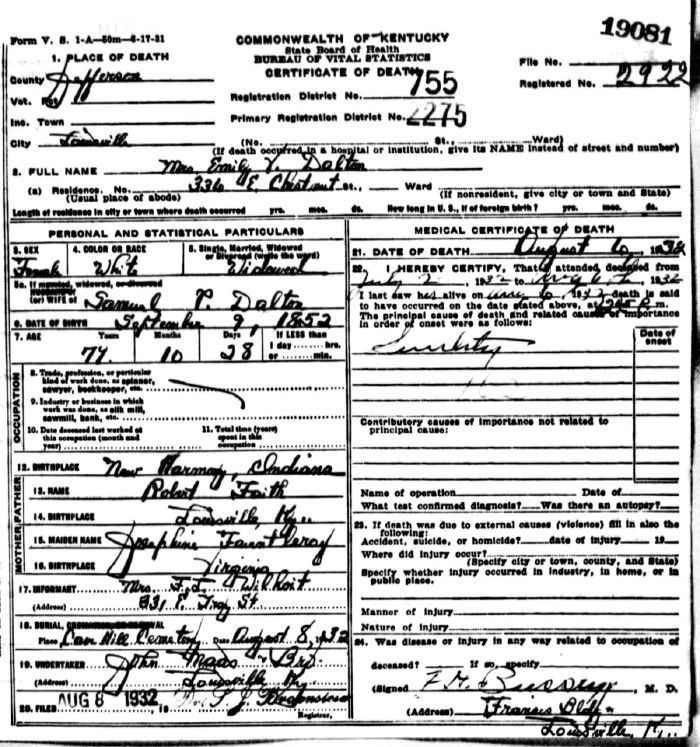 19081
Form V. S. 1-A—50m—6-17-31
COMMONWEALTH OF KENTUCKY
State Board of Health
BUREAU OF VITAL STATISTICS
CERTIFICATE OF DEATH
File No.
Registered No. 2922
1. PLACE OF DEATH
County Jefferson
Vot. Pct
Inc. Town
City Louisville
Registration District No. 755
Primary Registration District No. 2275
(No. St., Ward)
(If death occurred in a hospital or institution, give its NAME instead of street and number)
2. FULL NAME Mrs. Emily V. Dalton
(a) Residence. No. 336 E. Chestnut St., Ward
(Usual place of abode) (If nonresident, give city or town and State)
Length of residence in city or town where death occurred yrs. mos. ds. How long in U. S., if of foreign birth? yrs. mos. ds.
PERSONAL AND STATISTICAL PARTICULARS
3. SEX 4. COLOR OR RACE 5. Single, Married, Widowed or Divorced (write the word)
Female White Widowed
5a. If married, widowed, or divorced
(or) WIFE of Samuel P. Dalton
6. DATE OF BIRTH September 9, 1852
7. AGE Years Months Days If LESS than
1 day hrs.
77 10 28 or min.
OCCUPATION
8. Trade, profession, or particular
kind of work done, as spinner,
sawyer, bookkeeper, etc.
9. Industry or business in which
work was done, as silk mill,
sawmill, bank, etc.
10. Date deceased last worked at
this occupation (month and
year)
11. Total time (years)
spent in this
occupation
12. BIRTHPLACE New Harmony, Indiana
FATHER
13. NAME Robert Faith
14. BIRTHPLACE Louisville, Ky.
MOTHER
15. MAIDEN NAME Josephine Fauntleroy
16. BIRTHPLACE Virginia
17. INFORMANT Mrs. F. L. Wilhoit
(Address) 831 E. St
18. BURIAL, CREMATION OR REMOVAL
Place Cave Hill Cemetery Date August 8, 1932
19. UNDERTAKER John Maas Bro
(Address) Louisville Ky.
20. FILED AUG 8 1932
Registrar.
MEDICAL CERTIFICATE OF DEATH
21. DATE OF DEATH August 6, 1932
22. I HEREBY CERTIFY, That I attended deceased from
July 2, 1932 to Aug 6th, 1932
I last saw her alive on Aug 6, 1932 death is said
to have occurred on the date stated above, at m.
The principal cause of death and related causes of importance
in order of onset were as follows:
Date of
onset
Contributory causes of importance not related to
principal cause:
Name of operation Date of
What test confirmed diagnosis? Was there an autopsy?
23. If death was due to external causes (violence) fill in also the
following:
Accident, suicide, or homicide? date of injury 19
Where did injury occur?
(Specify city or town, county, and State)
Specify whether injury occurred in industry, in home, or in
public place.
Manner of injury
Nature of injury
24. Was disease or injury in any way related to occupation of
deceased? If so, specify
(Signed) M. D.
(Address) Francis Bldg
Louisville, Ky.